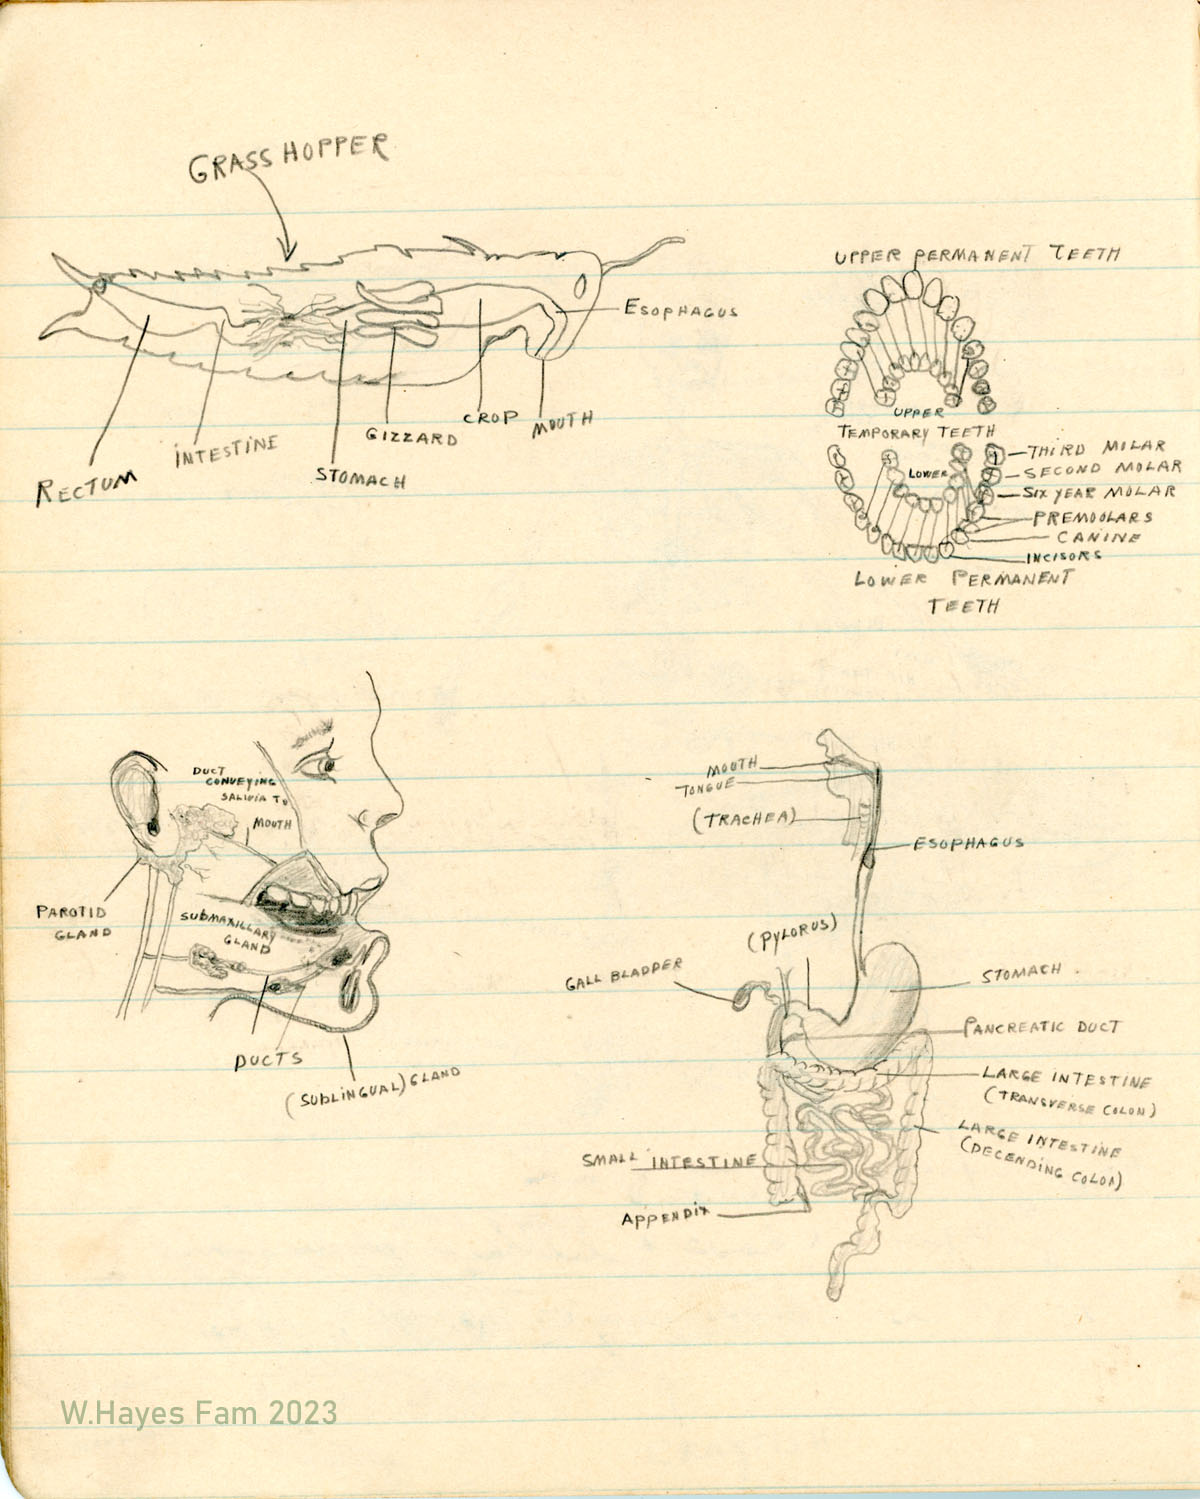 GRASSHOPPER
ESOPHAGUS
MOUTH
CROP
GIZZARD
STOMACH
INTESTINE
RECTUM
UPPER PERMANENT TEETH
UPPER
TEMPORARY TEETH
LOWER
THIRD MOLAR
SECOND MOLAR
SIX YEAR MOLAR
PREMOOLARS
CANINE
INCISORS
LOWER PERMANENT
TEETH
DUCT
CONVEYING
SALIVIA TO
MOUTH
PAROTID
GLAND
SUBMAXILLARY
GLAND
DUCTS
(SUBLINGUAL) GLAND
MOUTH
TONGUE
(TRACHEA)
ESOPHAGUS
(PYLORUS)
GALL BLADDER
STOMACH
PANCREATIC DUCT
LARGE INTESTINE
(TRANSVERSE COLON)
LARGE INTESTINE
(DECENDING COLON)
SMALL INTESTINE
APPENDIX
W.Hayes Fam 2023